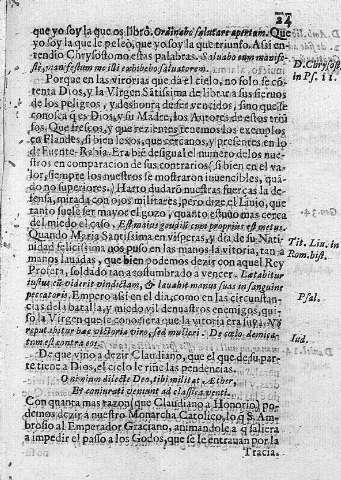 24
que yo soy la que os librò. Ordinabo salutare apertam. Que
yo soy la que le peleò, que yo soy la que triunfo. Assi en-
tendio Chrysostomo estas palabras. Saluabo eum manife-
stè, manifestum me illi exhibebo saluatorem.
D. Chrysost.
in Ps. 11.
Porque en las vitorias que dà el cielo, no solo se cõ
tenta Dios, y la Virgen Sãtissima de librar a sus siernos
de los peligros, y deshonra de ser vencidos, sino que se
conosca q̃ es Dios, y su Madre, los Autores de estos triũ
fos. Que frescos, y que rezientes tenemos los exemplos
en Flandes, si bien lexos, que cercanos, y presentes en lo
de Fuente-Rabia. Era biẽ desigual el numero de los nue-
stros en comparacion de sus contrarios (si bien en el va-
lor, siempre los nuestros se mostraron inuencibles, quã-
do no superiores.) Harto dudarõ nuestras fuerças la de-
fensa, mirada con ojos militares, pero dize el Liuio, que
tanto suele ser mayor el gozo, quanto estuuo mas cerca
del miedo el caso. Est maius gaudium quo proprius est metus.
Tit. Liu. in
Rom. hist.
Quando Maria Santissima en visperas, y dia de su Nati-
uidad felicissima nos puso en las manos la vitoria, tan a
manos lauadas, que bien podemos dezir con aquel Rey
Profeta, soldado tan acostumbrado a vencer. Lætabitur
iustus cũ viderit vindictam, & lauabit manus suas in sanguine
peccatoris.
Psal.
Empero assi en el dia, como en las circunstan-
cias de la batalla, y miedo vil de nuestros enemigos, qui-
so la Virgen que se conosciera que la vitoria era suya. Nõ
reputabitur hæc victoria viro, sed mulieri. De cœlo dimica-
tum est contra eos.
Iud.
De que vino a dezir Claudiano, que el que de su par-
te tiene a Dios, el cielo le riñe las pendencias.
O nimium dilecte Deo, tibi militat Æther,
Et coniurati veniunt ad classica venti.
Con quanta mas razon (que Claudiano a Honorio) po-
demos dezir a nuestro Monarcha Catolico, lo q̃ S. Am-
brosio al Emperador Graciano, animandole a q̃ saliera
a impedir el passo a los Godos, que se le entrauan por la
Tracia.